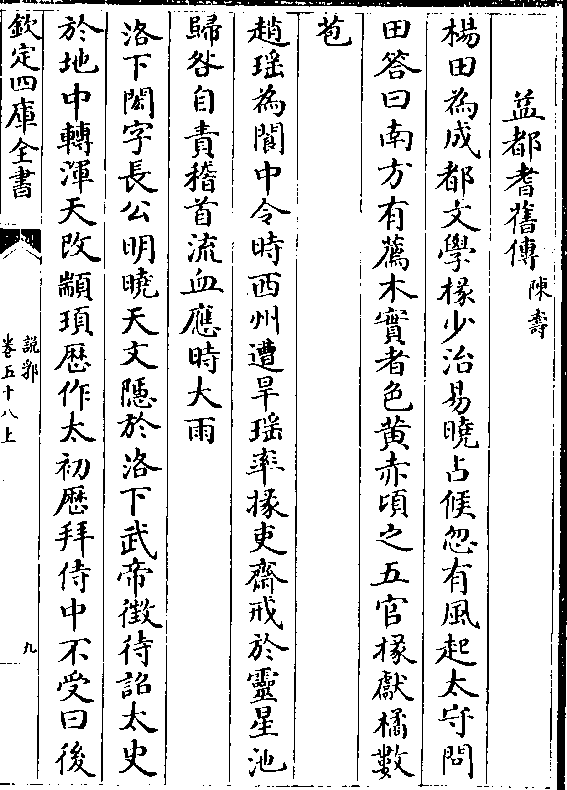 益都耆舊傳 陳壽
楊田為成都文學掾少治易曉占候忽有風起太守問
田答曰南方有薦木實者色黄赤頃之五官掾獻橘數
苞
趙瑶為閬中令時西州遭旱瑶率掾吏齋戒於靈星池
歸咎自責稽首流血應時大雨
洛下閎字長公明曉天文隱於洛下武帝徴待詔太史
於地中轉渾天改顓頊厯作太初厯拜侍中不受曰後
欽定四庫全書
說郛
卷五十八上
九